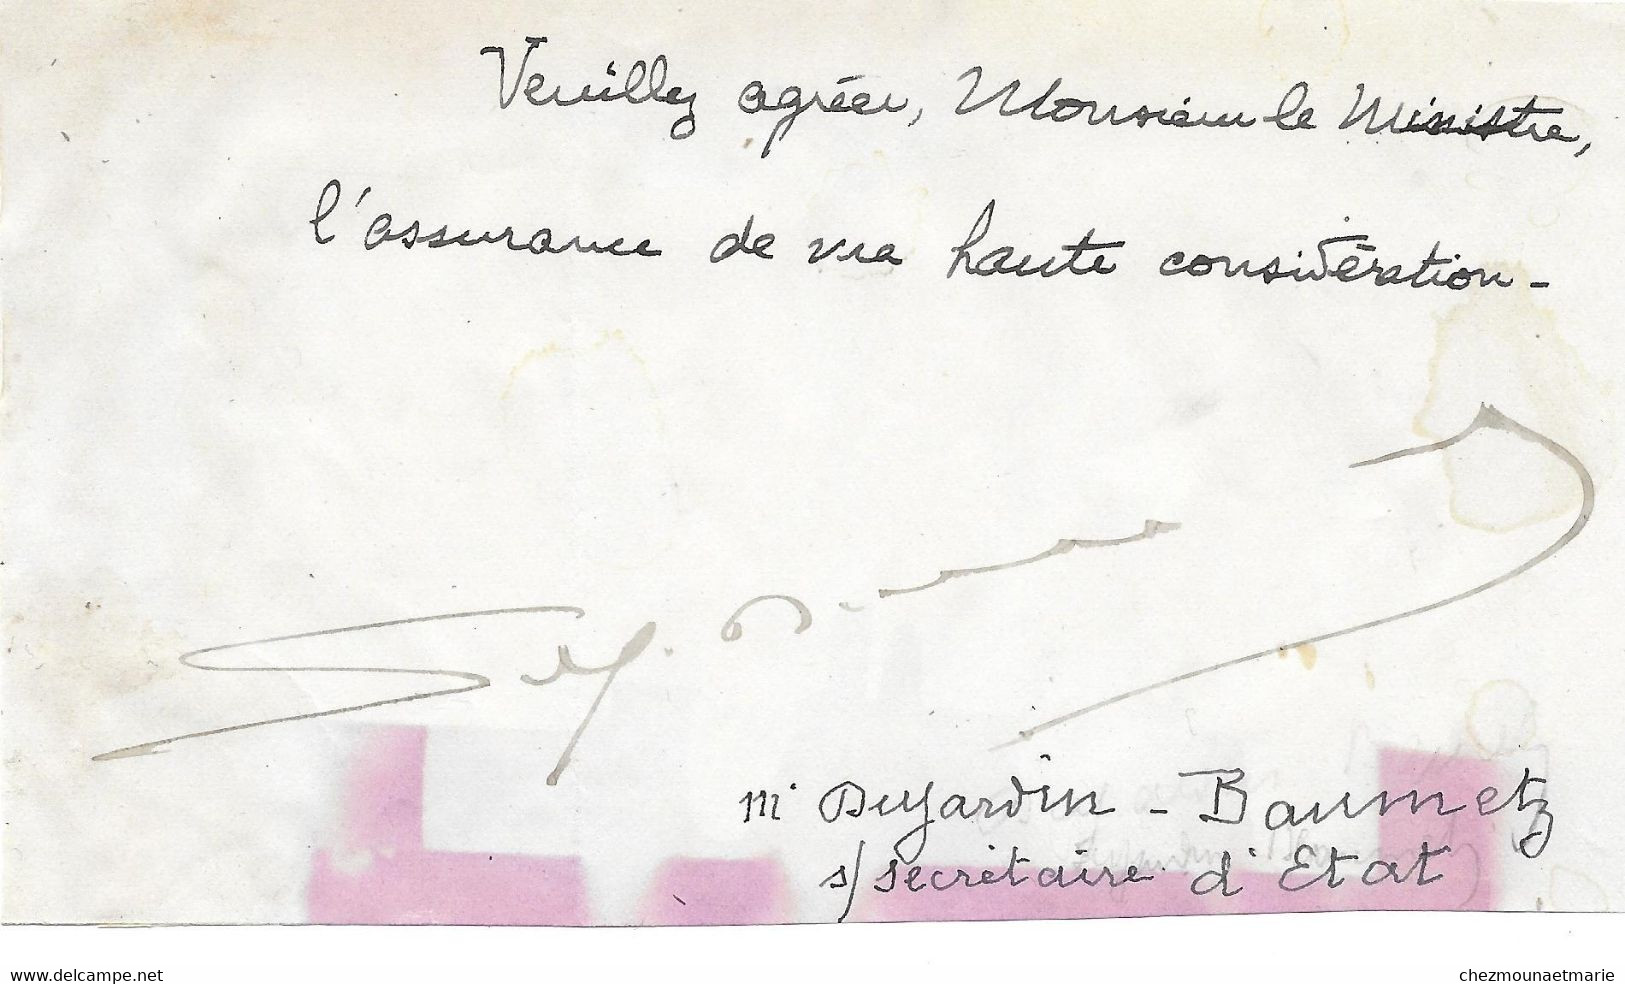 Veuillez agréer, Monsieur le Ministre,
l'assurance de ma haute considération -
Mr Dujardin - Baumetz
s/secrétaire d'Etat
www.delcampe.net
chezmounaetmarie